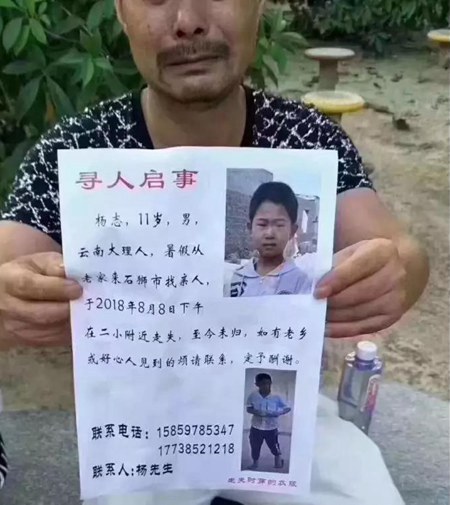 寻人启事
杨志，11岁，男，
云南大理人，暑假从
老家来石狮市找亲人，
于2018年8月8日下午
在二小附近走失，至今未归，如有老乡
或好心人见到的烦请联系，定予酬谢。
联系电话：15859785347
17738521218
联系人:杨先生
走失时穿的衣服